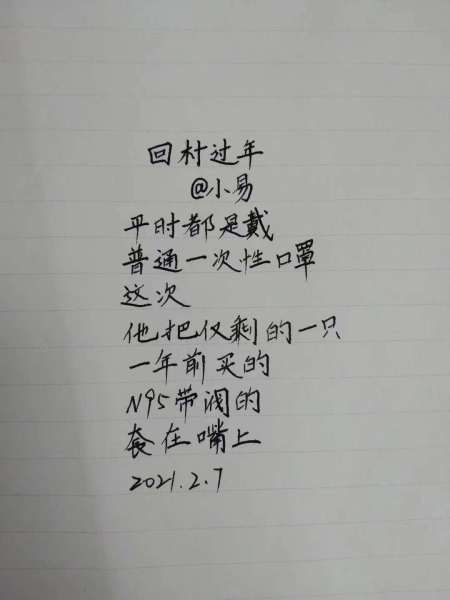 回村过年
@小易
平时都是戴
普通一次性口罩
这次
他把仅剩的一只
一年前买的
N95带阀的
套在嘴上
2021.2.7